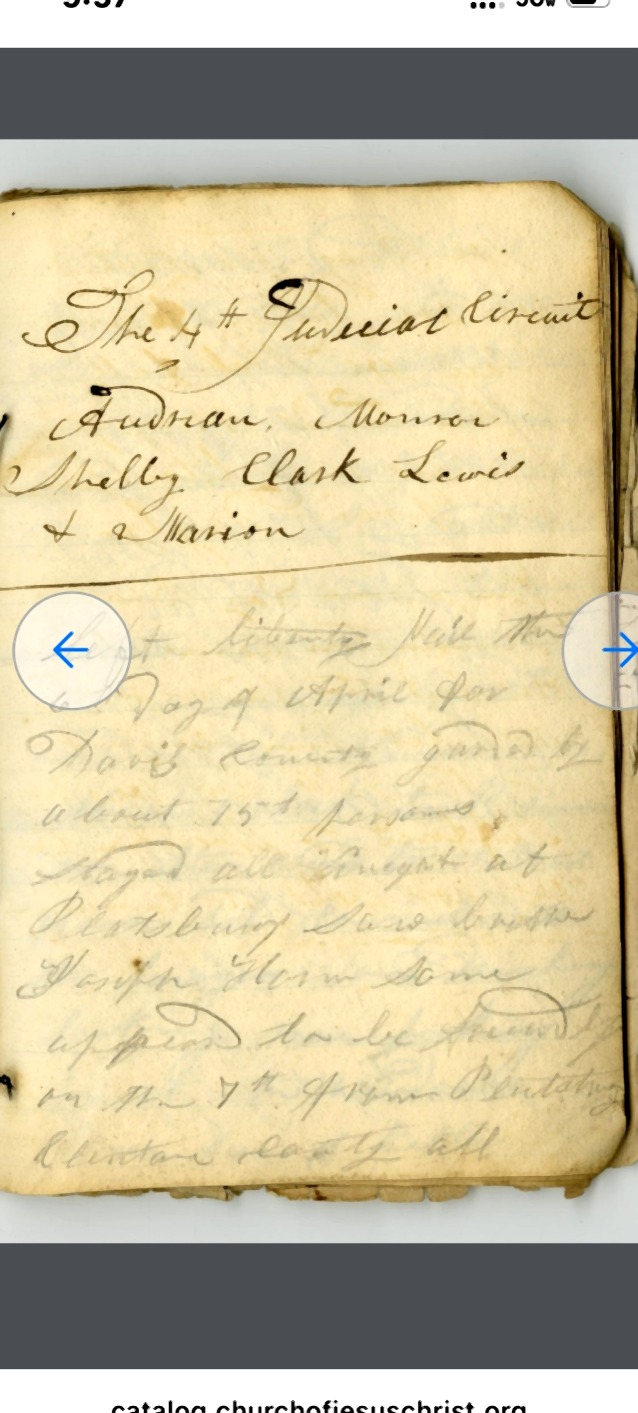 The 4th Judicial Circuit
Audrian. Monroe
Shelby Clark Lewis
& Marion
liberty Jail the
6 Day of April for
Davis County garded by
about 75 persons
stayed all at
Platsburg Saw brother
Joseph Horn some
appeard to be friendly
on the 7th from Plattsburg
Clinton County all
catalog.churchofjesuschrist.org